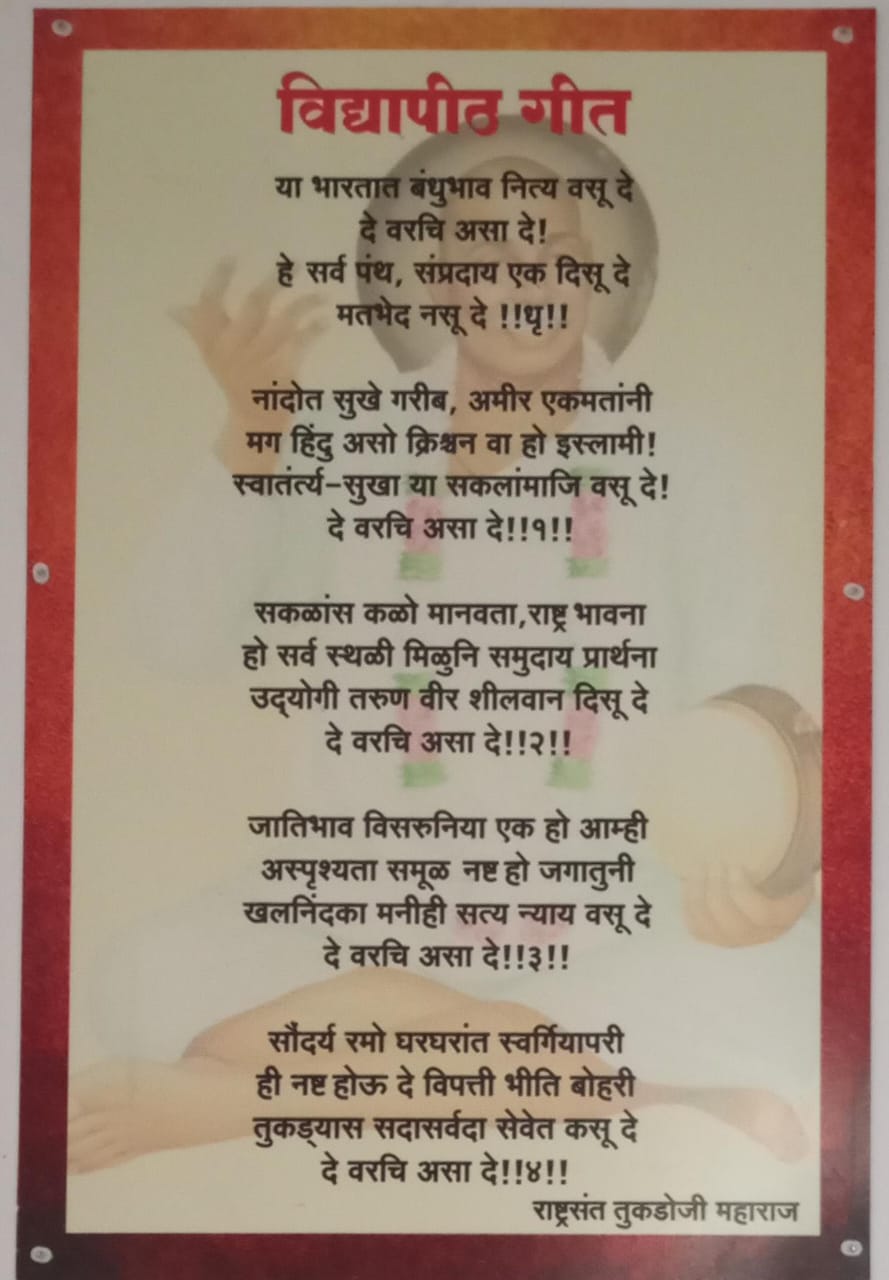 विद्यापीठ गीत
या भारतात बंधुभाव नित्य वसू दे
दे वरचि असा दे!
हे सर्व पंथ, संप्रदाय एक दिसू दे
मतभेद नसू दे !!धृ!!
नांदोत सुखे गरीब, अमीर एकमतांनी
मग हिंदु असो क्रिश्चन वा हो इस्लामी!
स्वातंर्त्य-सुखा या सकलांमाजि वसू दे!
दे वरचि असा दे!!१!!
सकळांस कळो मानवता,राष्ट्र भावना
हो सर्व स्थळी मिळुनि समुदाय प्रार्थना
उद्‌योगी तरुण वीर शीलवान दिसू दे
दे वरचि असा दे!!२!!
जातिभाव विसरुनिया एक हो आम्ही
अस्पृश्यता समूळ नष्ट हो जगातुनी
खलनिंदका मनीही सत्य न्याय वसू दे
दे वरचि असा दे!!३!!
सौंदर्य रमो घरघरांत स्वर्गियापरी
ही नष्ट होऊ दे विपत्ती भीति बोहरी
तुकड्यास सदासर्वदा सेवेत कसू दे
दे वरचि असा दे!!४!!
राष्ट्रसंत तुकडोजी महाराज